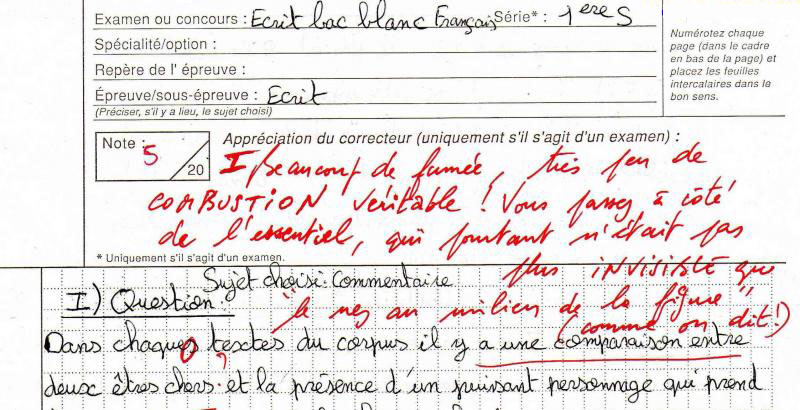 Examen ou concours : Ecrit bac blanc Français Série* : 1ères
Numérotez chaque
page (dans le cadre
en bas de la page) et
placez les feuilles
intercalaires dans le
bon sens.
Spécialité/option :
Repère de l'épreuve :
Épreuve/sous-épreuve : Ecrit
(Préciser, s'il y a lieu, le sujet choisi)
Note : 5 /20
Appréciation du correcteur (uniquement s'il s'agit d'un examen) :
I Beaucoup de fumée, très peu de
COMBUSTION véritable ! Vous passez à côté
de l'essentiel, qui pourtant n'était pas
plus INVISIBLE que
"le nez au milieu de la figure"
(comme on dit !)
* Uniquement s'il s'agit d'un examen.
Sujet choisi : Commentaire
I) Question :
Dans chaques textes du corpus il y a une comparaison entre
deux êtres chers ? et la présence d'un puissant personnage qui prend